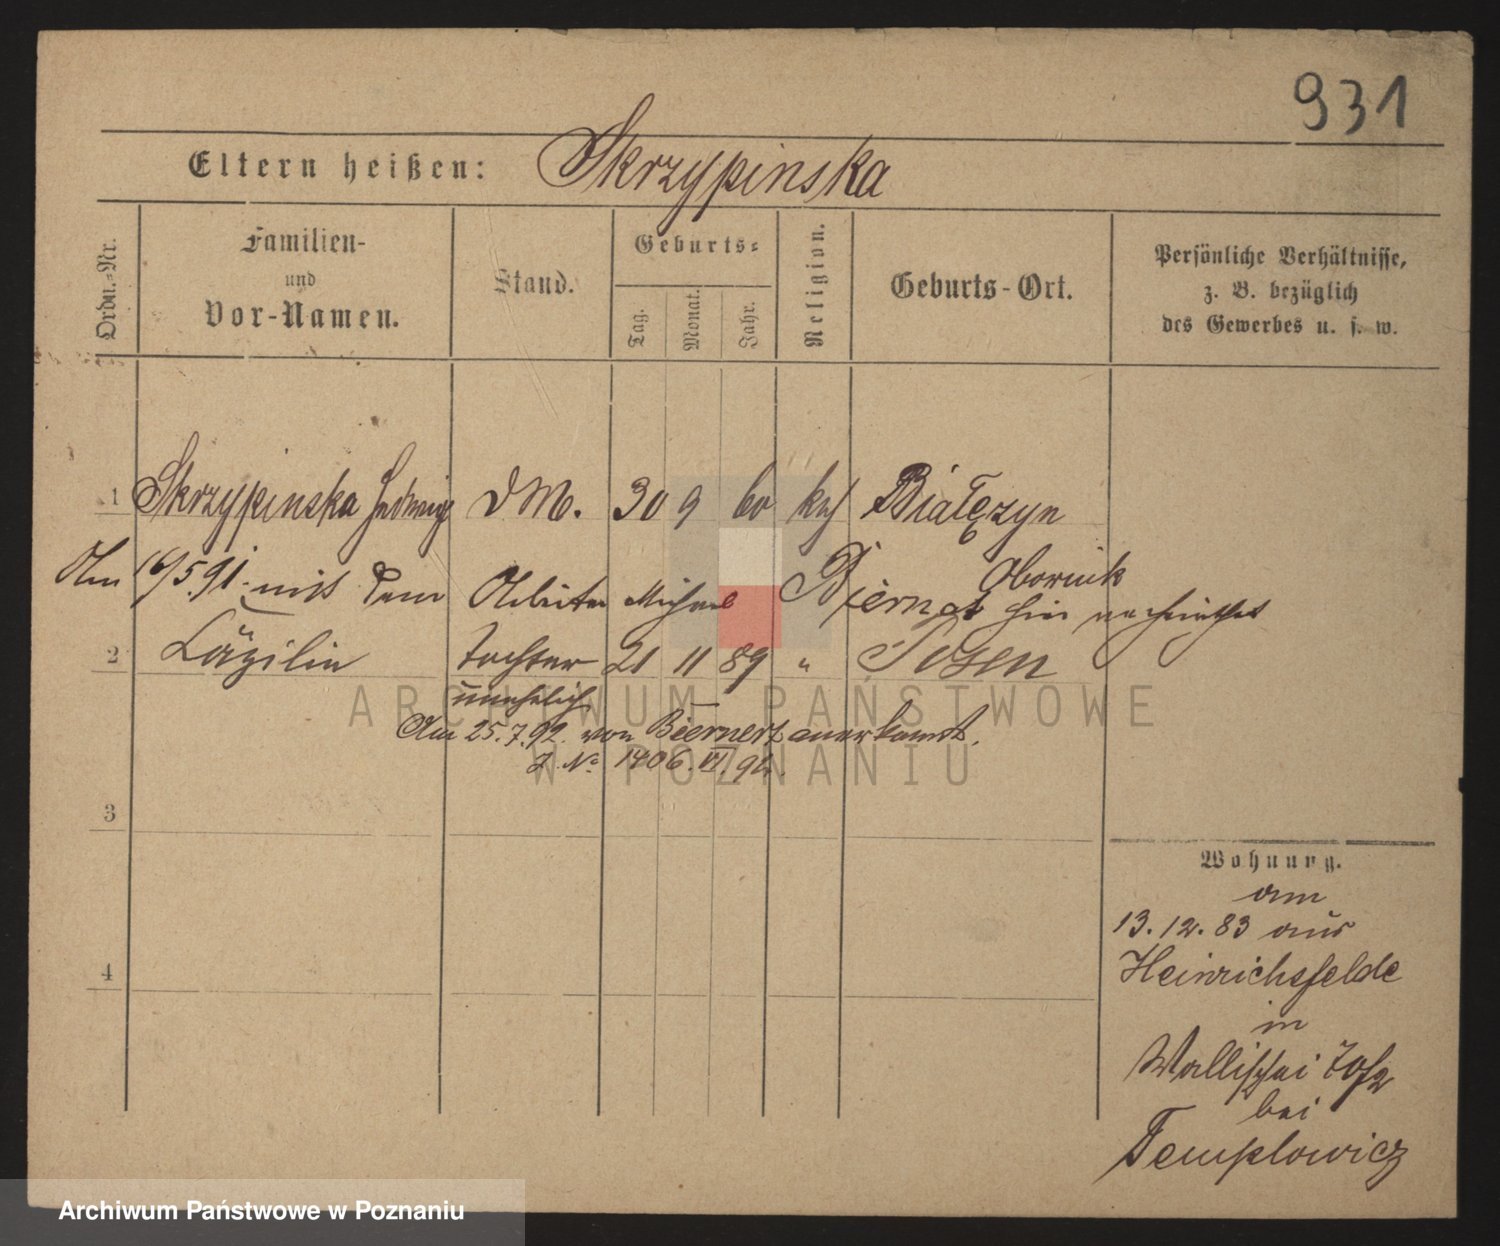 931
Eltern heißen: Skrzypinska
Ordn.-Nr.
Familien-
und
Vor-Namen.
Stand.
Geburts-
Tag.
Monat.
Jahr.
Religion.
Geburts-Ort.
Persönliche Verhältnisse,
z. B. bezüglich
des Gewerbes u. s. w.
1 Skrzypinska Hedwig D M. 30 9 60 kath Białęzyn
Obornik
Am 16/5.91. mit dem Arbeiter Michael Biernat hier verheirathet
2 Cäzilie Tochter 21 11 89 " Posen
unehelich
Am 25.7.92. von Biernert anerkannt.
J. No 1406. VI. 94.
3
4
Wohnung.
am
13.12.83 aus
Heinrichsfelde
in
Wallischei 70/2
bei
Templowicz
ARCHIWUM PAŃSTWOWE
W POZNANIU
Archiwum Państwowe w Poznaniu